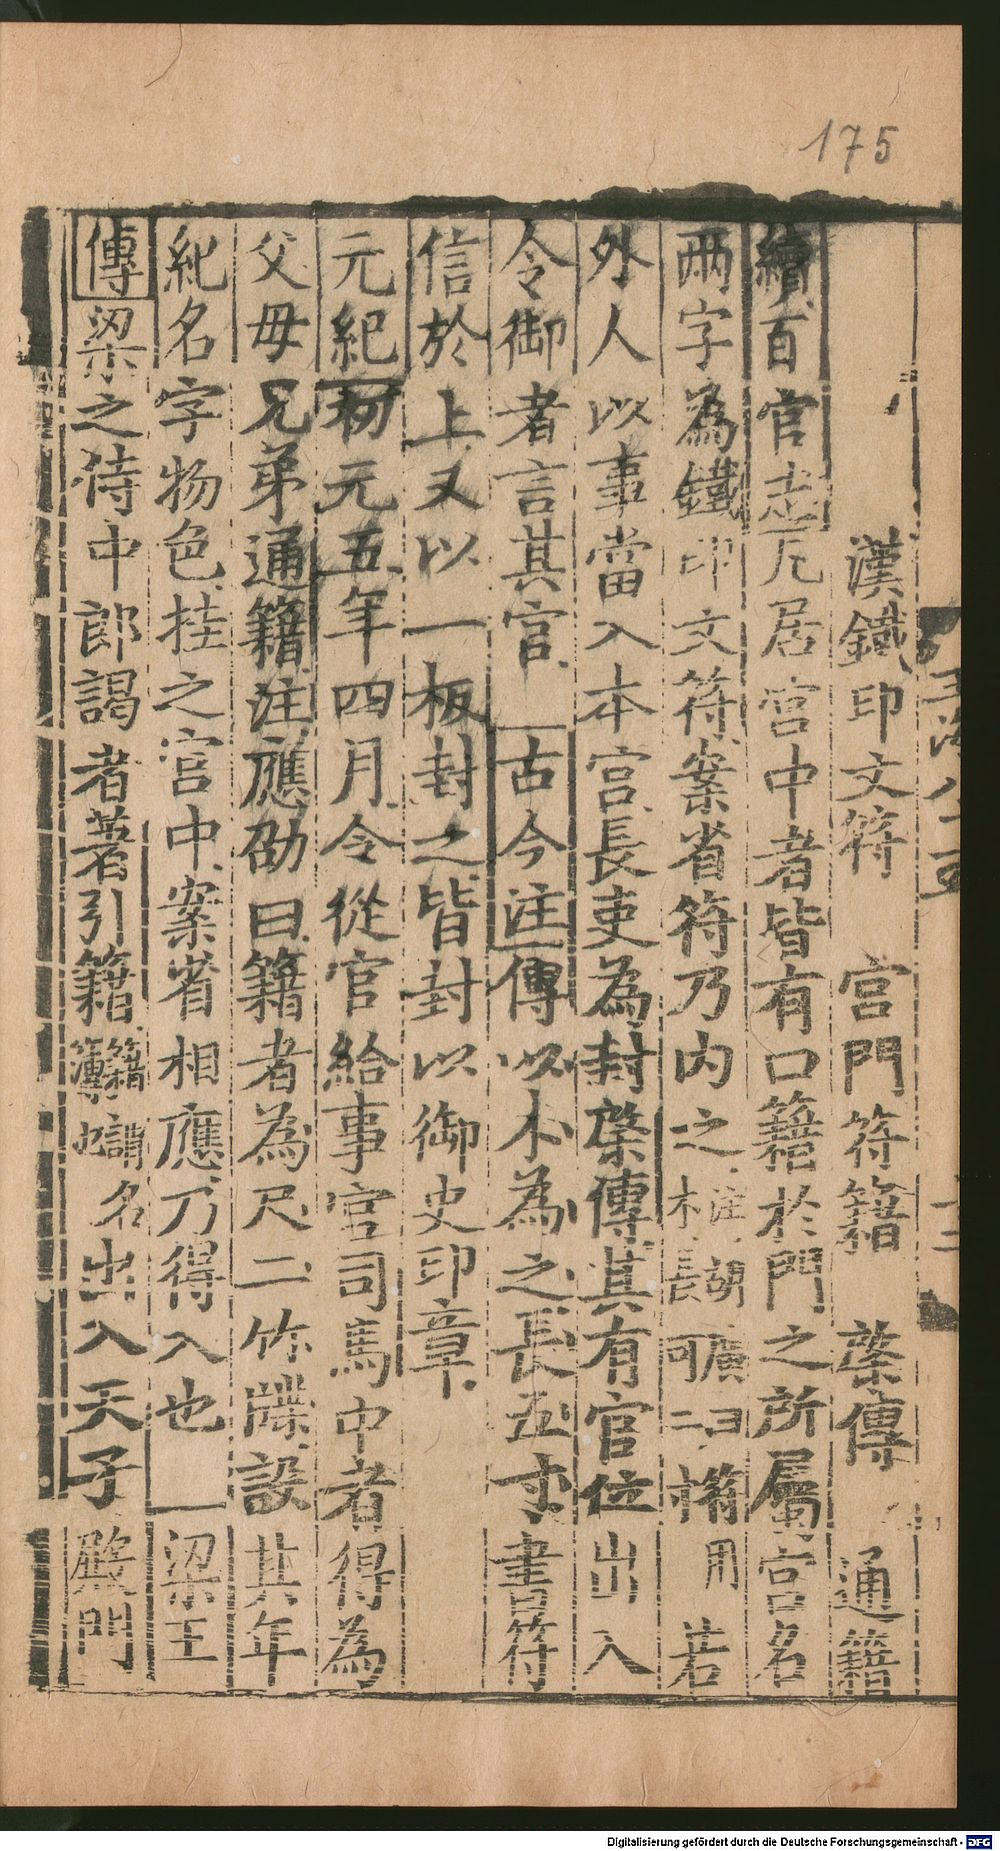 175
漢鐵印文符 宮門符籍 棨傳 通籍
續百官志凡居宮中者皆有口籍於門之所屬宮名
兩字為鐵印文符案省符乃內之注胡廣曰符用木長可二寸若
外人以事當入本宮長吏為封棨傳其有官位出入
令御者言其官 古今注傳以木為之長五寸書符
信於上又以一板封之皆封以御史印章
元紀初元五年四月令從官給事宮司馬中者得為
父母兄弟通籍注應劭曰籍者為尺二竹牒設其年
紀名字物色挂之宮中案省相應乃得入也 梁王
傳梁之侍中郎謁者著引籍籍謂名簿也出入天子殿門
Digitalisierung gefördert durch die Deutsche Forschungsgemeinschaft - DFG